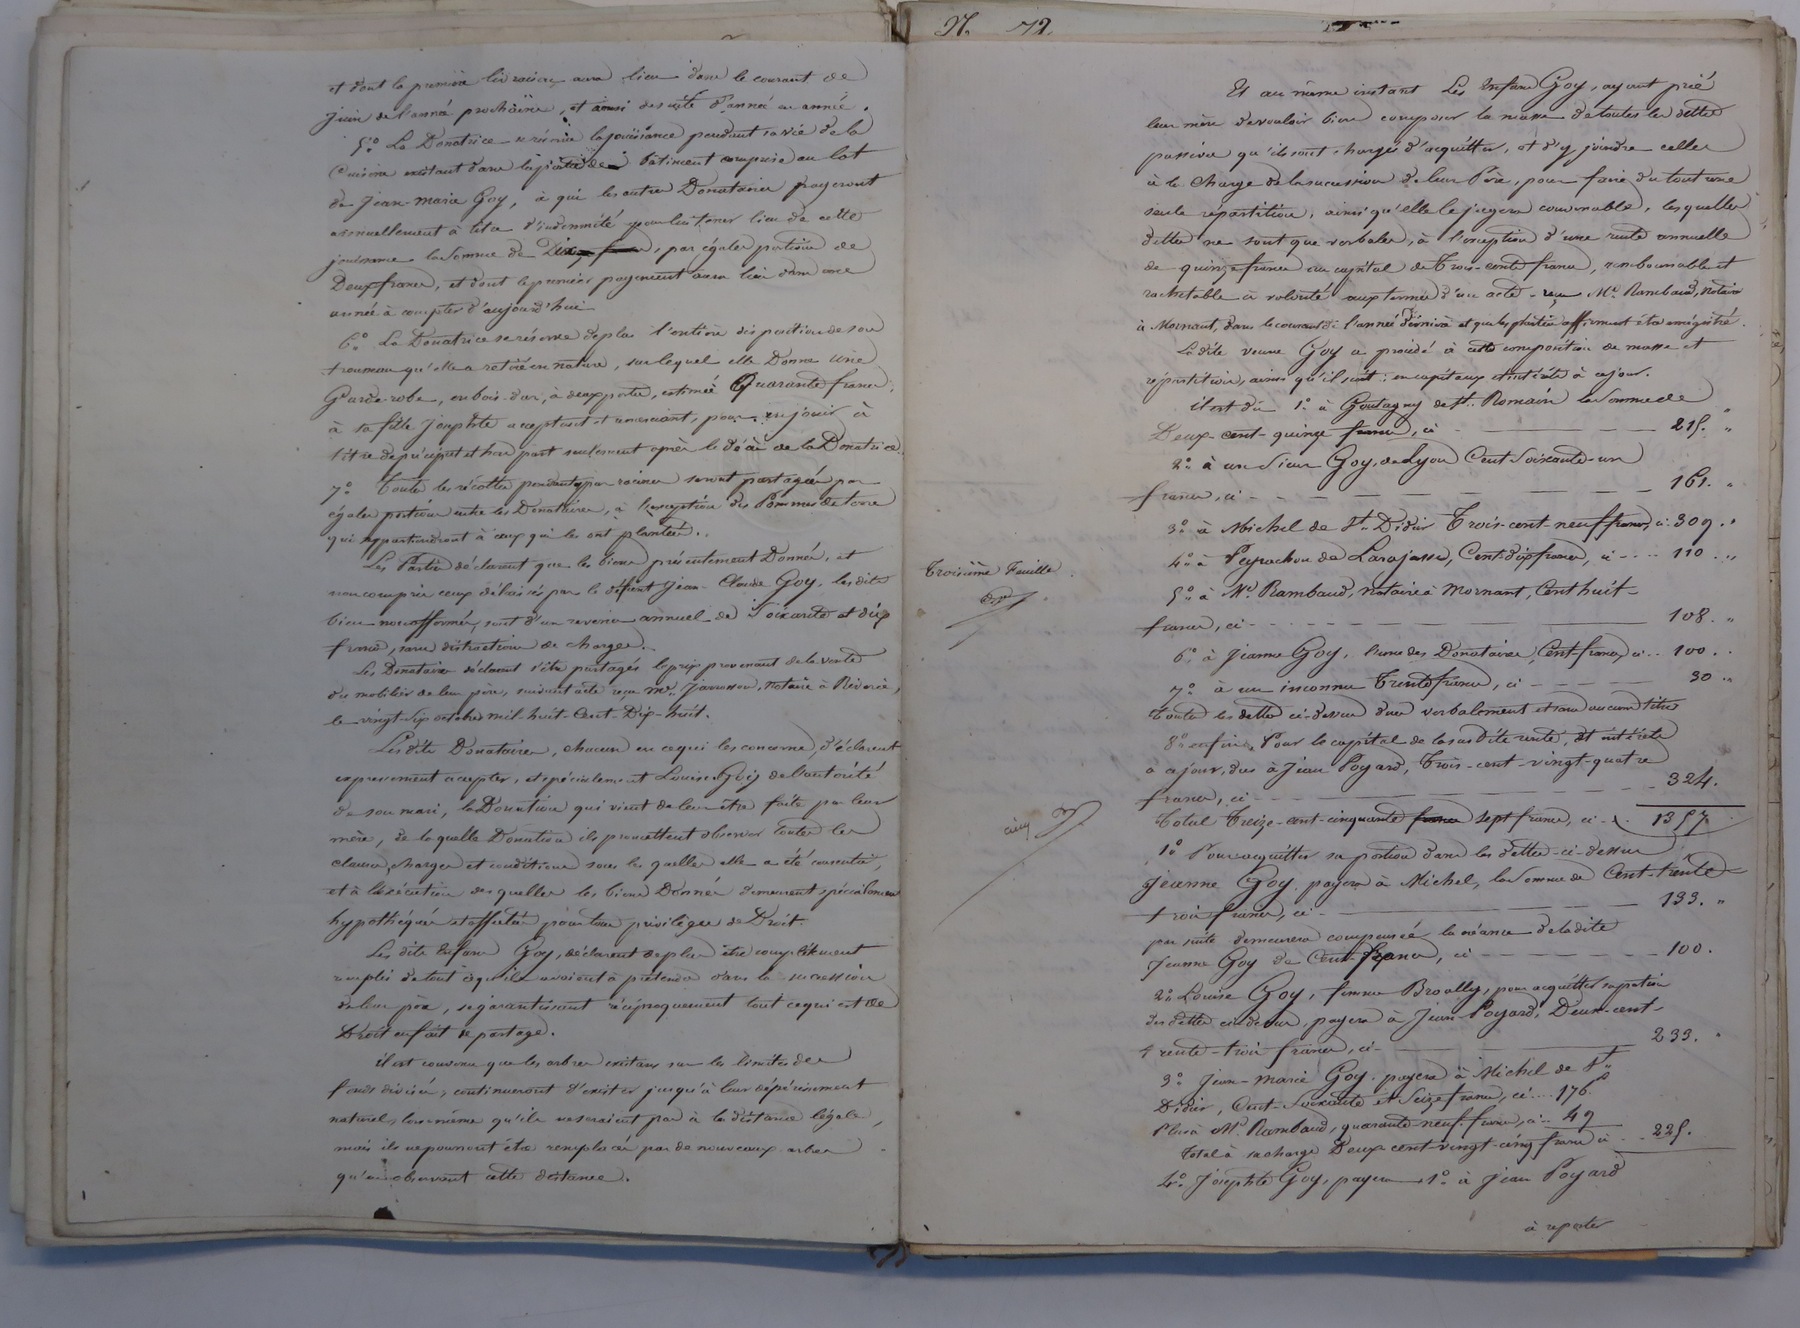 et dont la première livraison aura lieu dans le courant de
juin de l'année prochaine, et ainsi de suite d'année en année.
5.° La Donatrice se réserve la jouissance pendant sa vie de la
Cuisine existant dans la partie de bâtiment comprise au lot
de Jean-Marie Goy, à qui les autres Donataires payeront
annuellement à titre d'indemnité pour lui tenir lieu de cette
jouissance la Somme de Dix francs, par égales portions de
Deux francs, et dont le premier payement aura lieu dans une
année à compter d'aujourd'hui
6.° La Donatrice se réserve de plus l'entière disposition de son
trousseau qu'elle a retiré en nature, sur lequel elle Donne une
Garde-robe, en bois dur, à deux portes, estimée Quarante francs,
à sa fille Josephte acceptant et remerciant, pour en jouir à
titre de préciput et hors part seulement après le décès de la Donatrice.
7.° Toutes les récoltes pendantes par racines seront partagées par
égales portions entre les Donataires, à l'exception des Pommes de terre
qui appartiendront à ceux qui les ont plantées.
Les Parties déclarent que les biens présentement Donnés, et
non compris ceux délaissés par le défunt Jean-Claude Goy, lesdits
biens non affermés, sont d'un revenu annuel de Soixante et dix
francs, sans distraction de charges.
Les Donataires déclarent s'être partagés le prix provenant de la vente
du mobilier de leur père, suivant acte reçu Me. notaire à Riverie,
le vingt-six octobre mil-huit-Cent-Dix-huit.
Lesdits Donataires, chacun en ce qui les concerne, déclarent
expressement accepter, et spécialement Louise Goy de l'autorité
de son mari, la Donation qui vient de leur être faite par leur
mère, de laquelle Donation ils promettent observer toutes les
clauses, charges et conditions sous lesquelles elle a été consentie,
et à l'exécution desquelles les biens Donnés demeurent spécialement
hypothéqués et affectés pour tous privilèges de Droit.
Lesdits Enfans Goy, déclarent de plus être complétement
remplis de tout ce qu'ils avoient à prétendre dans la succession
de leur père, se garantissant réciproquement tout ce qui est de
Droit en fait de partage.
il est convenu que les arbres existans sur les limites des
fonds divisés, continueront d'exister jusqu'à leur dépérissement
naturel, lors même qu'ils ne seraient pas à la distance légale,
mais ils ne pourront être remplacés par de nouveaux arbres
qu'en observant cette distance.
N. 72.
Et au même instant Les Enfans Goy, ayant prié
leur mère de vouloir bien composer la masse de toutes les dettes
passives qu'ils sont chargés d'acquitter, et d'y joindre celles
à la charge de la succession de leur Père, pour faire du tout une
seule répartition, ainsi qu'elle le jugera convenable, lesquelles
dettes ne sont que verbales, à l'exception d'une rente annuelle
de quinze francs au capital de Trois-cents francs, remboursable et
rachetable à volonté aux termes d'un acte reçu Me. Rambaud, Notaire
à Mornant, dans le courant de l'année dernière et que les parties affirment être enrégistré.
Ladite veuve Goy a procédé à cette composition de masse et
répartition, ainsi qu'il suit: en capitaux et intérêts à ce jour.
il est dû 1.° à Goutagny de St. Romain la Somme de
Deux-cent-quinze francs, ci 215. "
2.° à un Sieur Goy, de Lyon Cent Soixante-un
francs, ci 161. "
3.° à Michel de St. Didier Trois-cent-neuf francs, ci 309. "
4.° à Peyrachon de Larajasse, Cent-dix francs, ci 110. "
Troisième Feuille
5.° à Me. Rambaud, notaire à Mornant, Cent huit
francs, ci 108. "
6.° à Jeanne Goy, l'une des Donataires, Cent-francs, ci 100.
7.° à un inconnu Trente francs, ci 30. "
Toutes les dettes ci-dessus dues verbalement et sans aucun titre
8.° enfin, Pour le capital de la susdite rente, et intérêts
à ce jour, dus à Jean Poyard, Trois-cent-vingt-quatre
francs, ci 324.
Total Treize-cent-cinquante francs sept francs, ci 1357
1.° Pour acquitter sa portion dans les dettes ci-dessus
Jeanne Goy payera à Michel, la Somme de Cent-trente-
trois francs, ci 133. "
par suite demeurera compensée la créance de ladite
Jeanne Goy de Cent-francs, ci 100.
2.° Louise Goy, femme Broally, pour acquitter sa portion
des dettes ci-dessus, payera à Jean Poyard, Deux-cent-
trente-trois francs, ci 233. "
3.° Jean-Marie Goy payera à Michel de St.
Didier, Cent-Soixante et Seize francs, ci 176
Plus à Me. Rambaud, quarante-neuf francs, ci 49
Total à sa charge Deux-cent-vingt-cinq francs ci 225.
4.° Josephte Goy, payera 1.° à Jean Poyard
à reporter